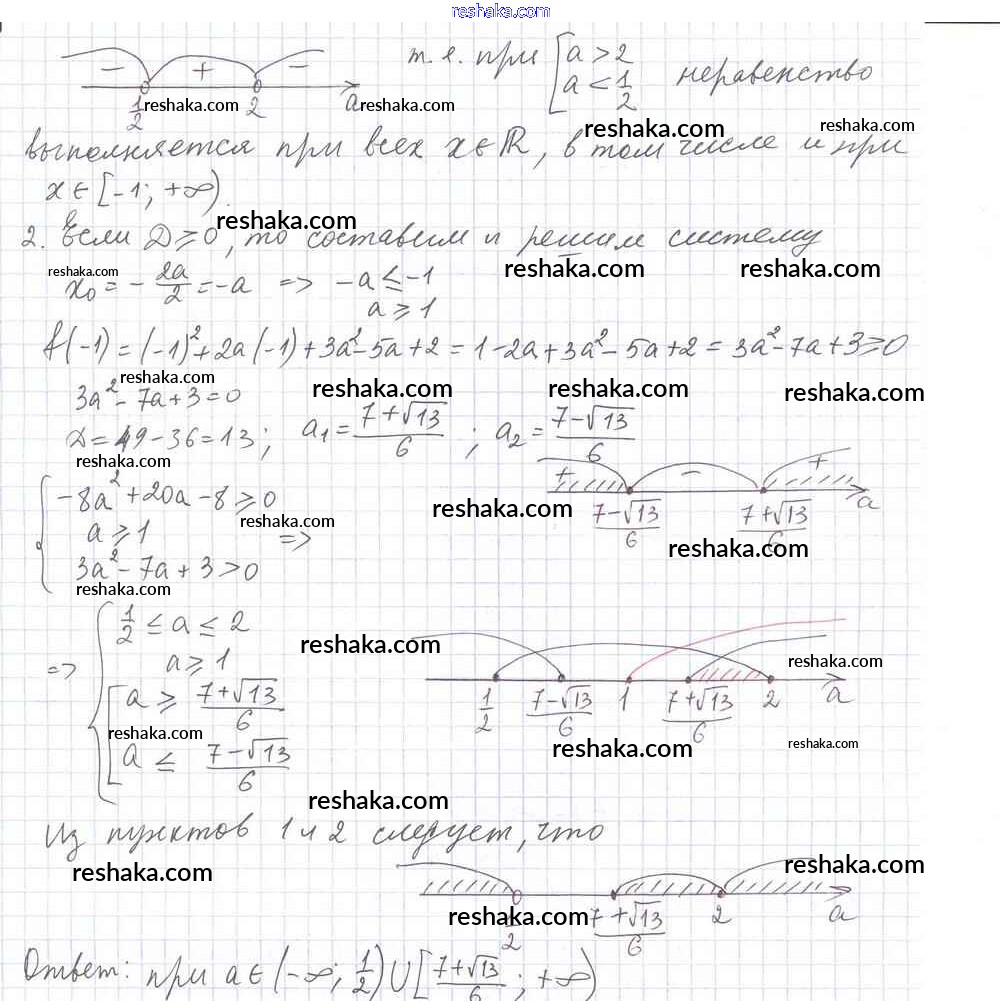 reshaka.com
− + −
1/2 2 a
т. е. при [ a > 2
a < 1/2 неравенство
reshaka.com reshaka.com
reshaka.com reshaka.com
выполняется при всех x ∈ R, в том числе и при
x ∈ [-1; +∞).
reshaka.com
2. Если D ≥ 0, то составим и решим систему
reshaka.com reshaka.com reshaka.com
x₀ = - 2a/2 = -a => -a ≤ -1
a ≥ 1
f(-1) = (-1)² + 2a(-1) + 3a² - 5a + 2 = 1 - 2a + 3a² - 5a + 2 = 3a² - 7a + 3 ≥ 0
reshaka.com reshaka.com reshaka.com reshaka.com
3a² - 7a + 3 = 0
D = 49 - 36 = 13; a₁ = (7+√13)/6 ; a₂ = (7-√13)/6
reshaka.com
+ − +
(7-√13)/6 (7+√13)/6 a
{ -8a² + 20a - 8 ≥ 0
reshaka.com reshaka.com
a ≥ 1 =>
reshaka.com
3a² - 7a + 3 > 0
reshaka.com
=> { 1/2 ≤ a ≤ 2
reshaka.com reshaka.com
a ≥ 1
[ a ≥ (7+√13)/6
reshaka.com
a ≤ (7-√13)/6
1/2 (7-√13)/6 1 (7+√13)/6 2 a
reshaka.com reshaka.com
reshaka.com
Из пунктов 1 и 2 следует, что
reshaka.com reshaka.com
1/2 (7+√13)/6 2 a
reshaka.com
Ответ: при a ∈ (-∞; 1/2) ∪ [(7+√13)/6; +∞)